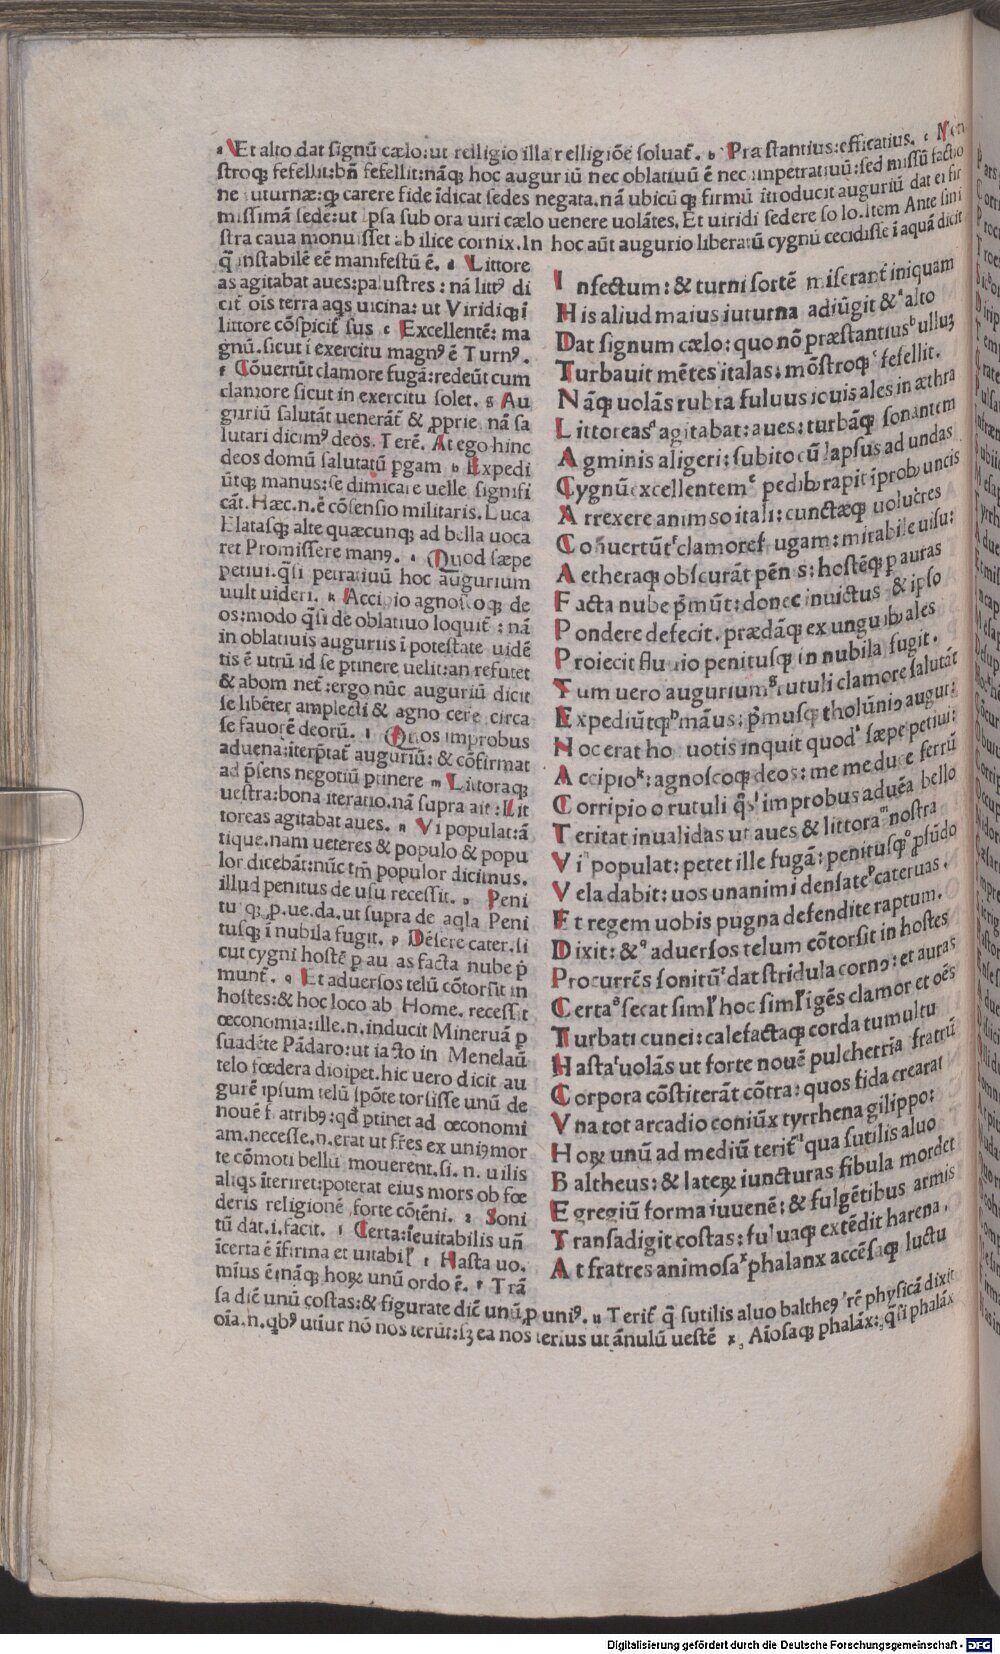 a Et alto dat signū cælo: ut relligio illa relligiōē soluat̄. b Præstantius: efficatius. c Mon
stroq; fefellit: bn̄ fefellit: nāq; hoc auguriū nec oblatiuū ē nec impetratiuū: sed missū factio
ne iuturnæ: qꝫ carere fide īdicat sedes negata. nā ubicūq; firmū ītroducit auguriū dat ei fir
missimā sedē: ut Ipsa sub ora uiri cælo uenere uolātes. Et uiridi sedere solo. Item Ante sini
stra caua monuisset ab ilice cornix. In hoc aūt augurio liberatū cygnū cecidisse ī aquā dicit
q̄ instabilē eē manifestū ē. d Littore
as agitabat aues: palustres: nā littꝰ di
cit̄ oīs terra aqs uicina: ut Viridiq; ī
littore cōspicit̄ sus e Excellentē: ma
gnū. sicut ī exercitu magnꝰ ē Turnꝰ.
f Cōuertūt clamore fugā: redeūt cum
clamore sicut in exercitu solet. g Au
guriū salutāt uenerāt̄ & ꝓprie nā sa
lutari dicimꝰ deos. Terē. At ego hinc
deos domū salutatū pgam h Expedi
ūtq; manus: se dimicare uelle signifi
cāt. Hæc. n. ē cōsensio militaris. Luca
Elatasq; alte quæcunq; ad bella uoca
ret Promissere manꝰ. i Quod sæpe
petiui. q̄si petratiuū hoc augurium
uult uideri. k Accipio agnoscoq; de
os: modo q̄si de oblatiuo loquit̄: nā
in oblatiuis auguriis ī potestate uidē
tis ē utrū id se ptinere uelit: an refutet
& abominet̄: ergo nūc auguriū dicit
se libēter amplecti & agnoscere circa
se fauorē deorū. l Quos improbus
aduena: iterp̄tat̄ auguriū: & cōfirmat
ad p̄sens negotiū ptinere m Littoraq;
uestra: bona iteratio. nā supra ait: Lit
toreas agitabat aues. n Vi populat: ā
tique. nam ueteres & populo & popu
lor dicebāt: nūc tm̄ populor dicimus.
illud penitus de usu recessit. o Peni
tusq; p. ue. da. ut supra de aqla Peni
tusq; ī nubila fugit. p Dēsete cater. si
cut cygni hostē p auras facta nube p̄
munt̄. q Et aduersos telū cōtorsit in
hostes: & hoc loco ab Home. recessit
œconomia: ille. n. inducit Mineruā p
suadēte Pādaro: ut iacto in Menelaū
telo fœdera dioipet. hic uero dicit au
gurē ipsum telū spōte torsisse unū de
nouē fratribꝰ: qđ ptinet ad œconomi
am. necesse. n. erat ut fr̄es ex uniꝰ mor
te cōmoti bellū mouerent. si. n. uilis
aliqs īteriret: poterat eius mors ob fœ
deris religionē forte cōtēni. r Soni
tū dat. i. facit. s Certa: ieuitabilis un̄
īcerta ē īfirma et uitabil̄ t Hasta uo.
mīus ē: nāq; hoꝝ unū ordo ē. v Trā
sa diē unū costas: & figurate diē unū ꝓ uniꝰ. u Terit̄ q̄ sutilis aluo baltheꝰ: rē physicā dixit
oīa. n. qbꝰ utiur nō nos terūt: sꝫ ea nos terius ut ānulū uestē x Aīosaq; phalāx: q̄si phalāx
I nfectum: & turni sortē miserant̄ iniquam
H is aliud maius iuturna adiūgit & ᵃ alto
D at signum cælo: quo nō præstantius ᵇ ulluꝫ
T urbauit mētes italas: mōstroq; ᶜ fefellit.
N āq; uolās rubra fuluus iouis ales in æthra
L ittoreas ᵈ agitabat: aues: turbāq; sonantem
A gminis aligeri: subito cū lapsus ad undas
C ygnū excellentem ᵉ pedibꝰ rapit īprobꝰ uncis
A rrexere animso itali: cunctæq; uolucres
C ōuertūt ᶠ clamore fugam: mirabile uisu:
A etheraq; obscurāt pēnis: hostēq; p auras
F acta nube p̄mūt: donec inuictus & ipso
P ondere defecit. prædāq; ex unguibꝰ ales
P roiecit fluuio penitusq; in nubila fugit.
T um uero augurium ᵍ rutuli clamore salutāt
E xpediūtq; ʰ māus: p̄musq; tholūnio augur:
H oc erat hoc uotis inquit quod ⁱ sæpe petiui:
A ccipio ᵏ: agnoscoq; deos: me me duce ferrū
C orripio o rutuli q̄s ˡ improbus aduēa bello
T eritat inualidas ut aues & littora ᵐ nostra
V i ⁿ populat: petet ille fugā: penitusq; ᵒ p̄fūdo
V ela dabit: uos unanimi densate ᵖ cateruas.
E t regem uobis pugna defendite raptum.
D ixit: & ᵠ aduersos telum cōtorsit in hostes
P rocurrēs sonitū ʳ dat stridula cornꝰ: et auras
C erta ˢ secat siml̄ hoc siml̄ igēs clamor et oēs
T urbati cunei: calefactaq; corda tumultu
H asta ᵗ uolās ut forte nouē pulcherrīa fratrū
C orpora cōstiterāt cōtra: quos fida crearat
V na tot arcadio coniūx tyrrhena gilippo:
H oꝝ unū ad mediū terit̄ ᵘ qua sutilis aluo
B altheus: & lateꝝ iuncturas fibula mordet
E gregiū forma iuuenē: & fulgētibus armis
T ransadigit costas: fuluaq; extēdit harena.
A t fratres animosa ˣ phalanx accēsaq; luctu
Digitalisierung gefördert durch die Deutsche Forschungsgemeinschaft - DFG